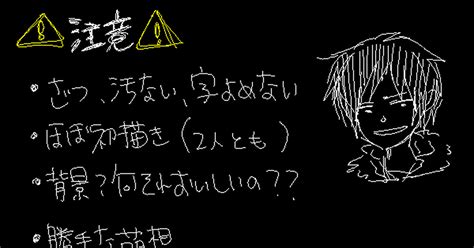 注意
・ざつ、汚ない、字よめない
・ほぼ初描き(2人とも)
・背景?何それおいしいの??
・勝手な妄想